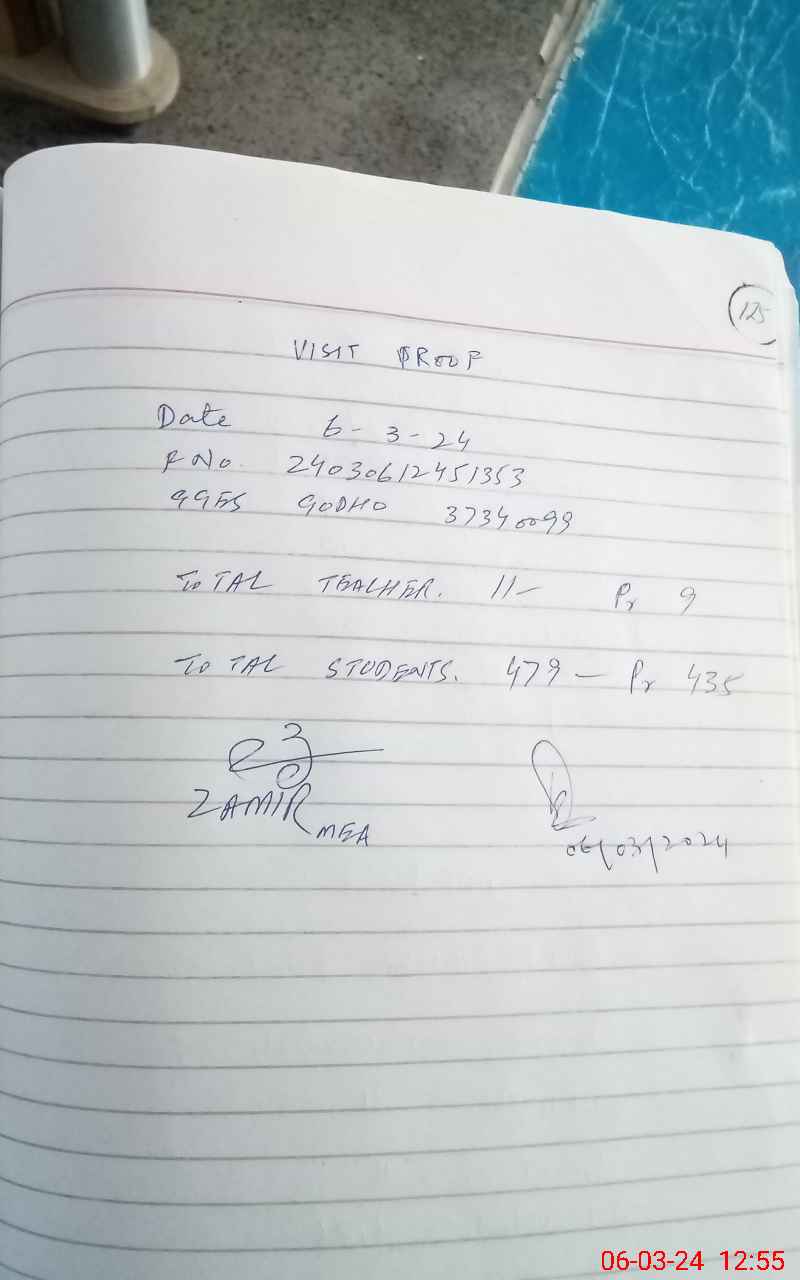 125
VISIT PROOF
Date 6-3-24
F No. 24030612451353
GGES GODHO 37340099
TOTAL TEACHER. 11- Pr 9
TOTAL STUDENTS. 479 - Pr 435
ZAMIR
MEA
06/03/2024
06-03-24 12:55